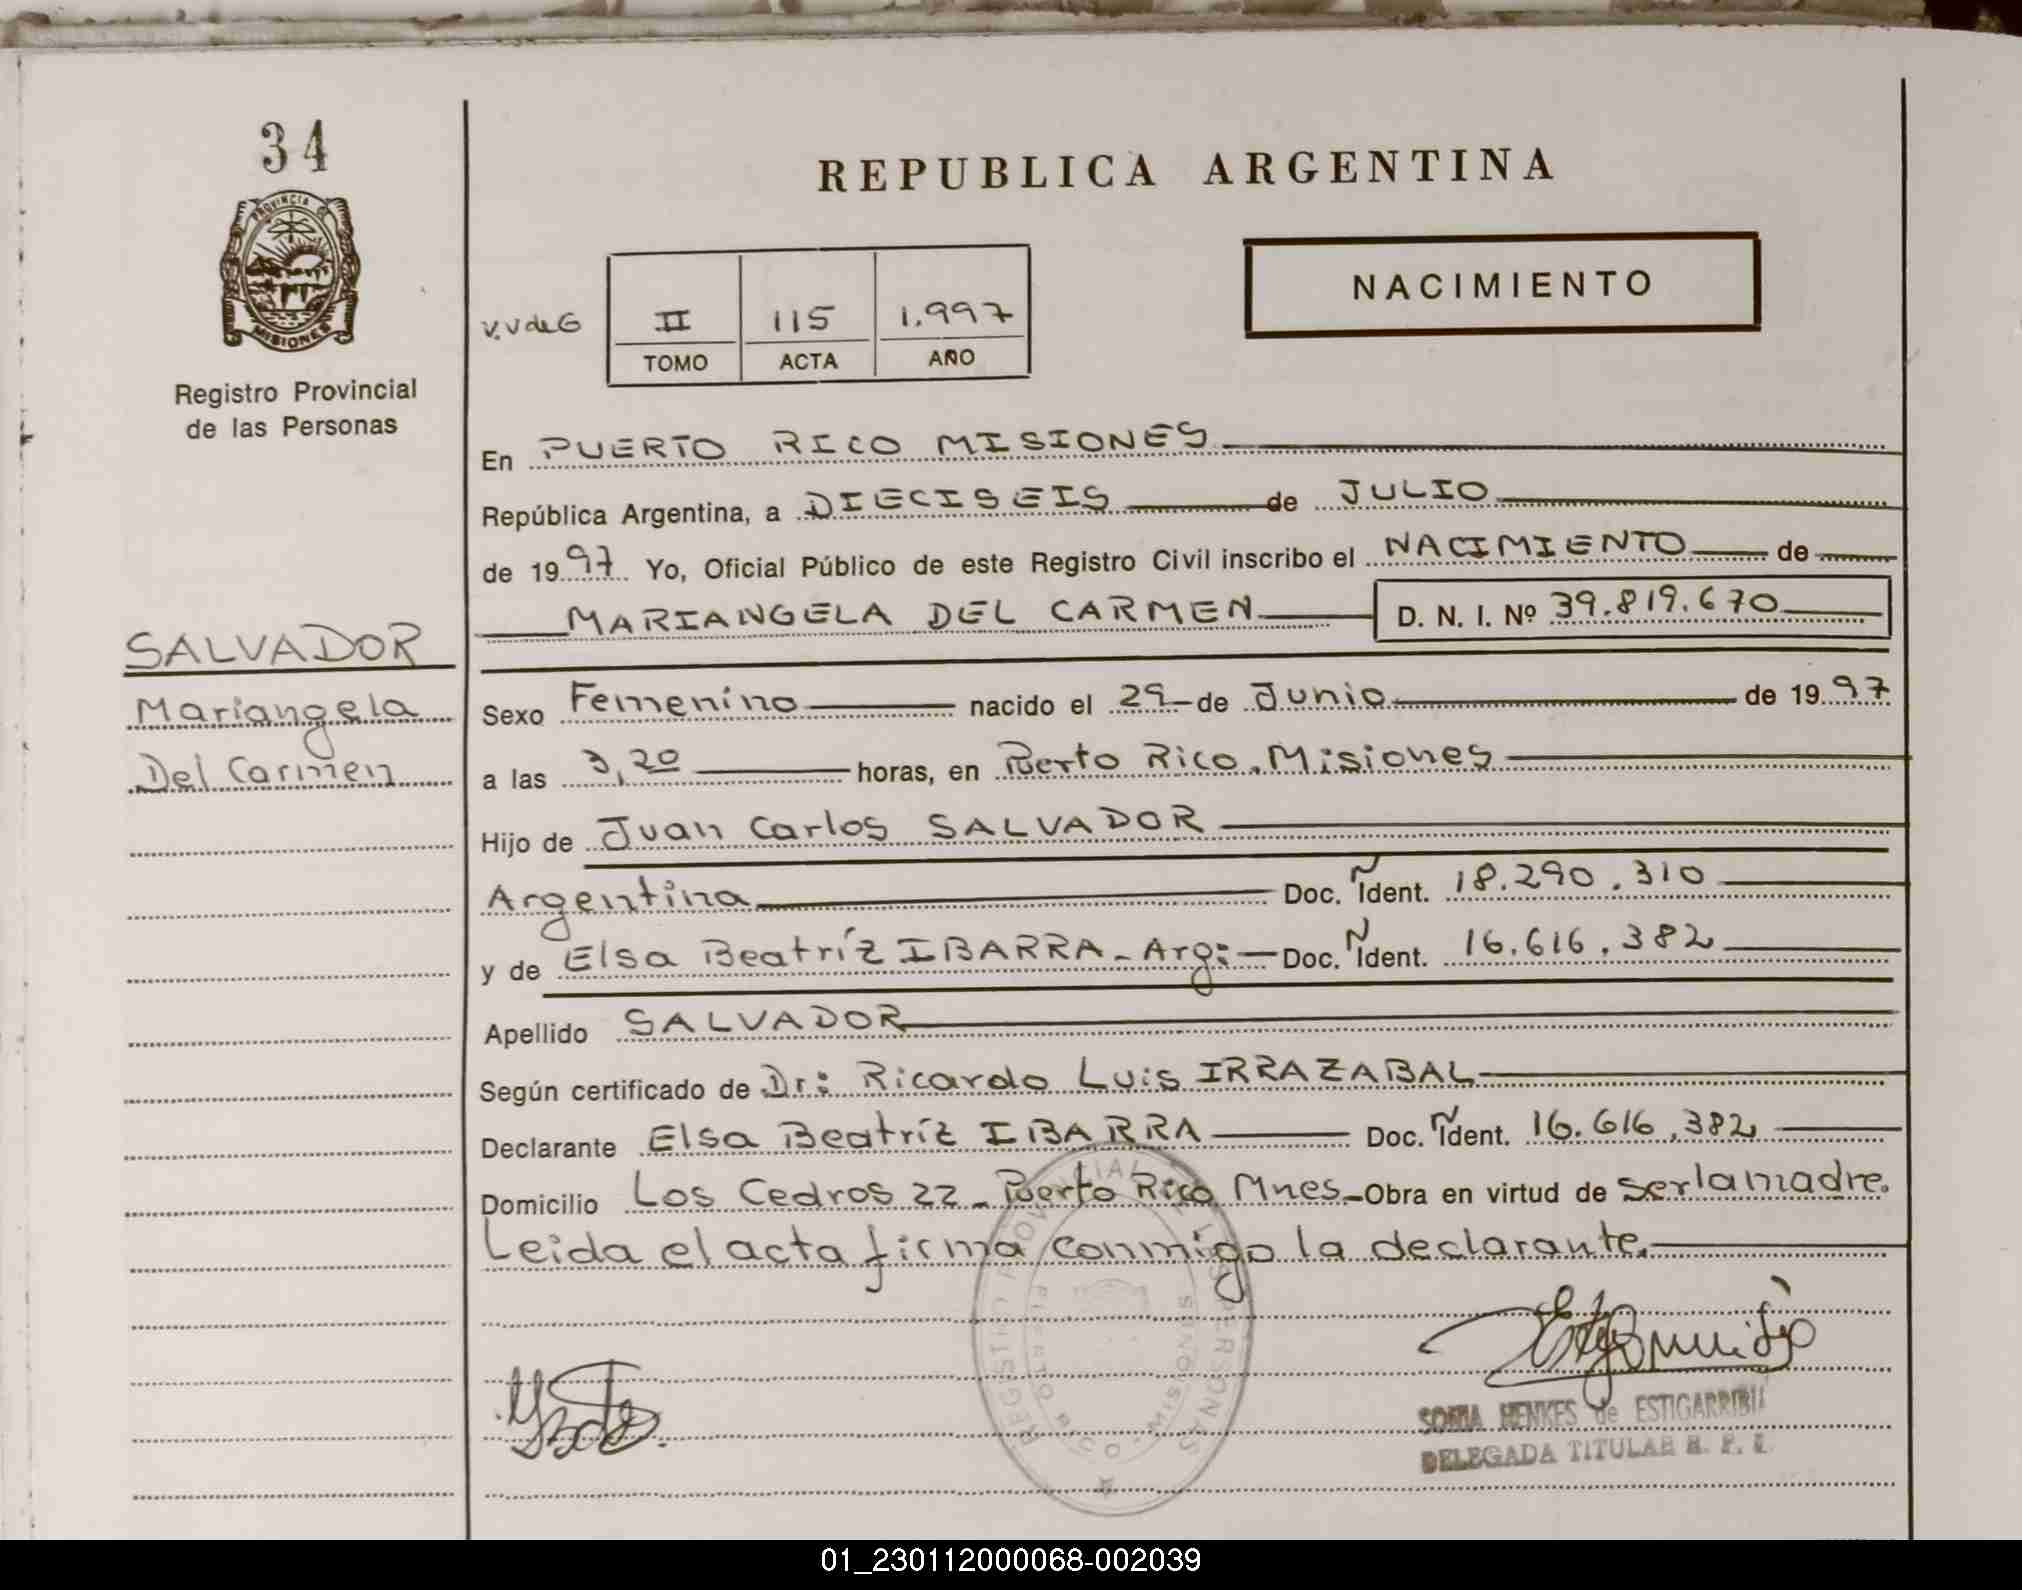 34
REPUBLICA ARGENTINA
PROVINCIA DE
MISIONES
NACIMIENTO
V.V de G
II 115 1.997
TOMO ACTA AÑO
Registro Provincial
de las Personas
En PUERTO RICO MISIONES
República Argentina, a DIECISEIS de JULIO
de 1997 Yo, Oficial Público de este Registro Civil inscribo el NACIMIENTO de
MARIANGELA DEL CARMEN D. N. I. Nº 39.819.670
SALVADOR
Mariangela
Del Carmen
Sexo Femenino nacido el 29 de Junio de 1997
a las 3,20 horas, en Puerto Rico. Misiones
Hijo de Juan Carlos SALVADOR
Argentina Doc. Ident. 18.290.310
y de Elsa Beatríz IBARRA - Arg: Doc. Ident. 16.616.382
Apellido SALVADOR
Según certificado de Dr: Ricardo Luis IRRAZABAL
Declarante Elsa Beatríz IBARRA Doc. Ident. 16.616.382
Domicilio Los Cedros 22 - Puerto Rico Mnes - Obra en virtud de ser la madre.
Leida el acta firma conmigo la declarante.
REGISTRO PROVINCIAL DE LAS PERSONAS
PUERTO RICO - MISIONES
SONIA HENKES de ESTIGARRIBIA
DELEGADA TITULAR R. P. P.
01_230112000068-002039